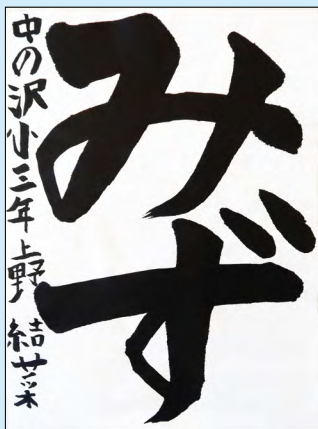 みず
中の沢小三年上野 結菜